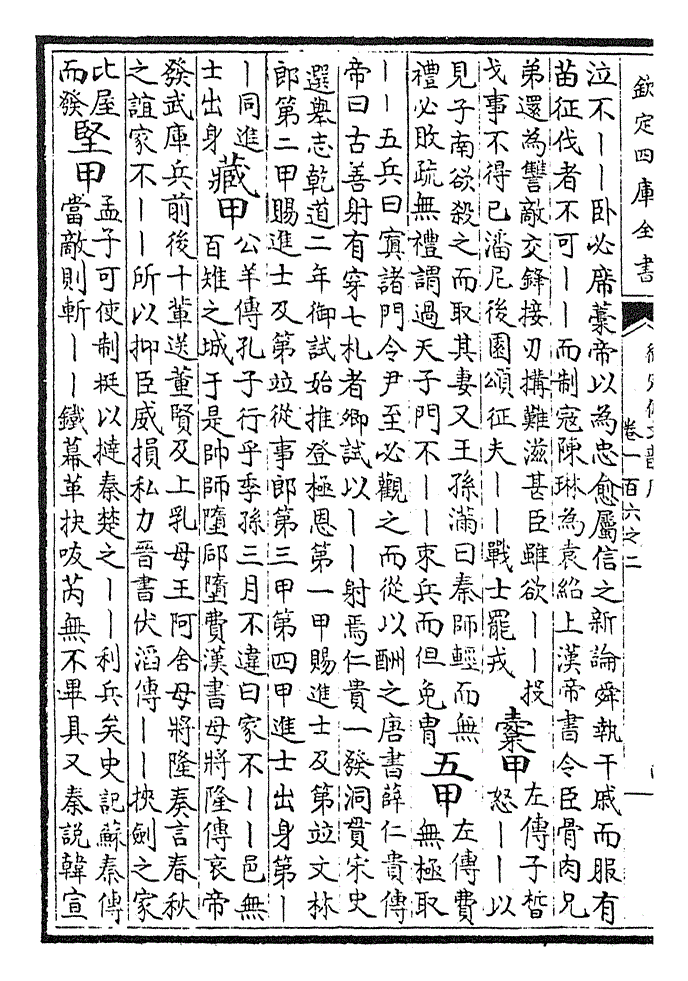 欽定四庫全書
卷一百六之二
泣不丨丨臥必席藁帝以為忠愈屬信之新論舜執干戚而服有
苗征伐者不可丨丨而制寇陳琳為袁紹上漢帝書令臣骨肉兄
弟還為讐敵交鋒接刃搆難滋甚臣雖欲丨丨投
戈事不得已潘尼後園頌征夫丨丨戰士罷戎
櫜甲
左傳子晳
怒丨丨以
見子南欲殺之而取其妻又王孫滿曰秦師輕而無
禮必敗疏無禮謂過天子門不丨丨束兵而但免冑
五甲
左傳費
無極取
丨丨五兵曰寘諸門令尹至必觀之而從以酬之唐書薛仁貴傳
帝曰古善射有穿七札者卿試以丨丨射焉仁貴一發洞貫宋史
選舉志乾道二年御試始推登極恩第一甲賜進士及第竝文林
郎第二甲賜進士及第竝從事郎第三甲第四甲進士出身第丨
丨同進
士出身
藏甲
公羊傳孔子行乎季孫三月不違曰家不丨丨邑無
百雉之城于是帥師墮郈墮費漢書毋將隆傳哀帝
發武庫兵前後十輩送董賢及上乳母王阿舍毋將隆奏言春秋
之誼家不丨丨所以抑臣威損私力晉書伏滔傳丨丨挾劍之家
比屋
而發
堅甲
孟子可使制梃以撻秦楚之丨丨利兵矣史記蘇秦傳
當敵則斬丨丨鐵幕革抉㕹芮無不畢具又秦說韓宣